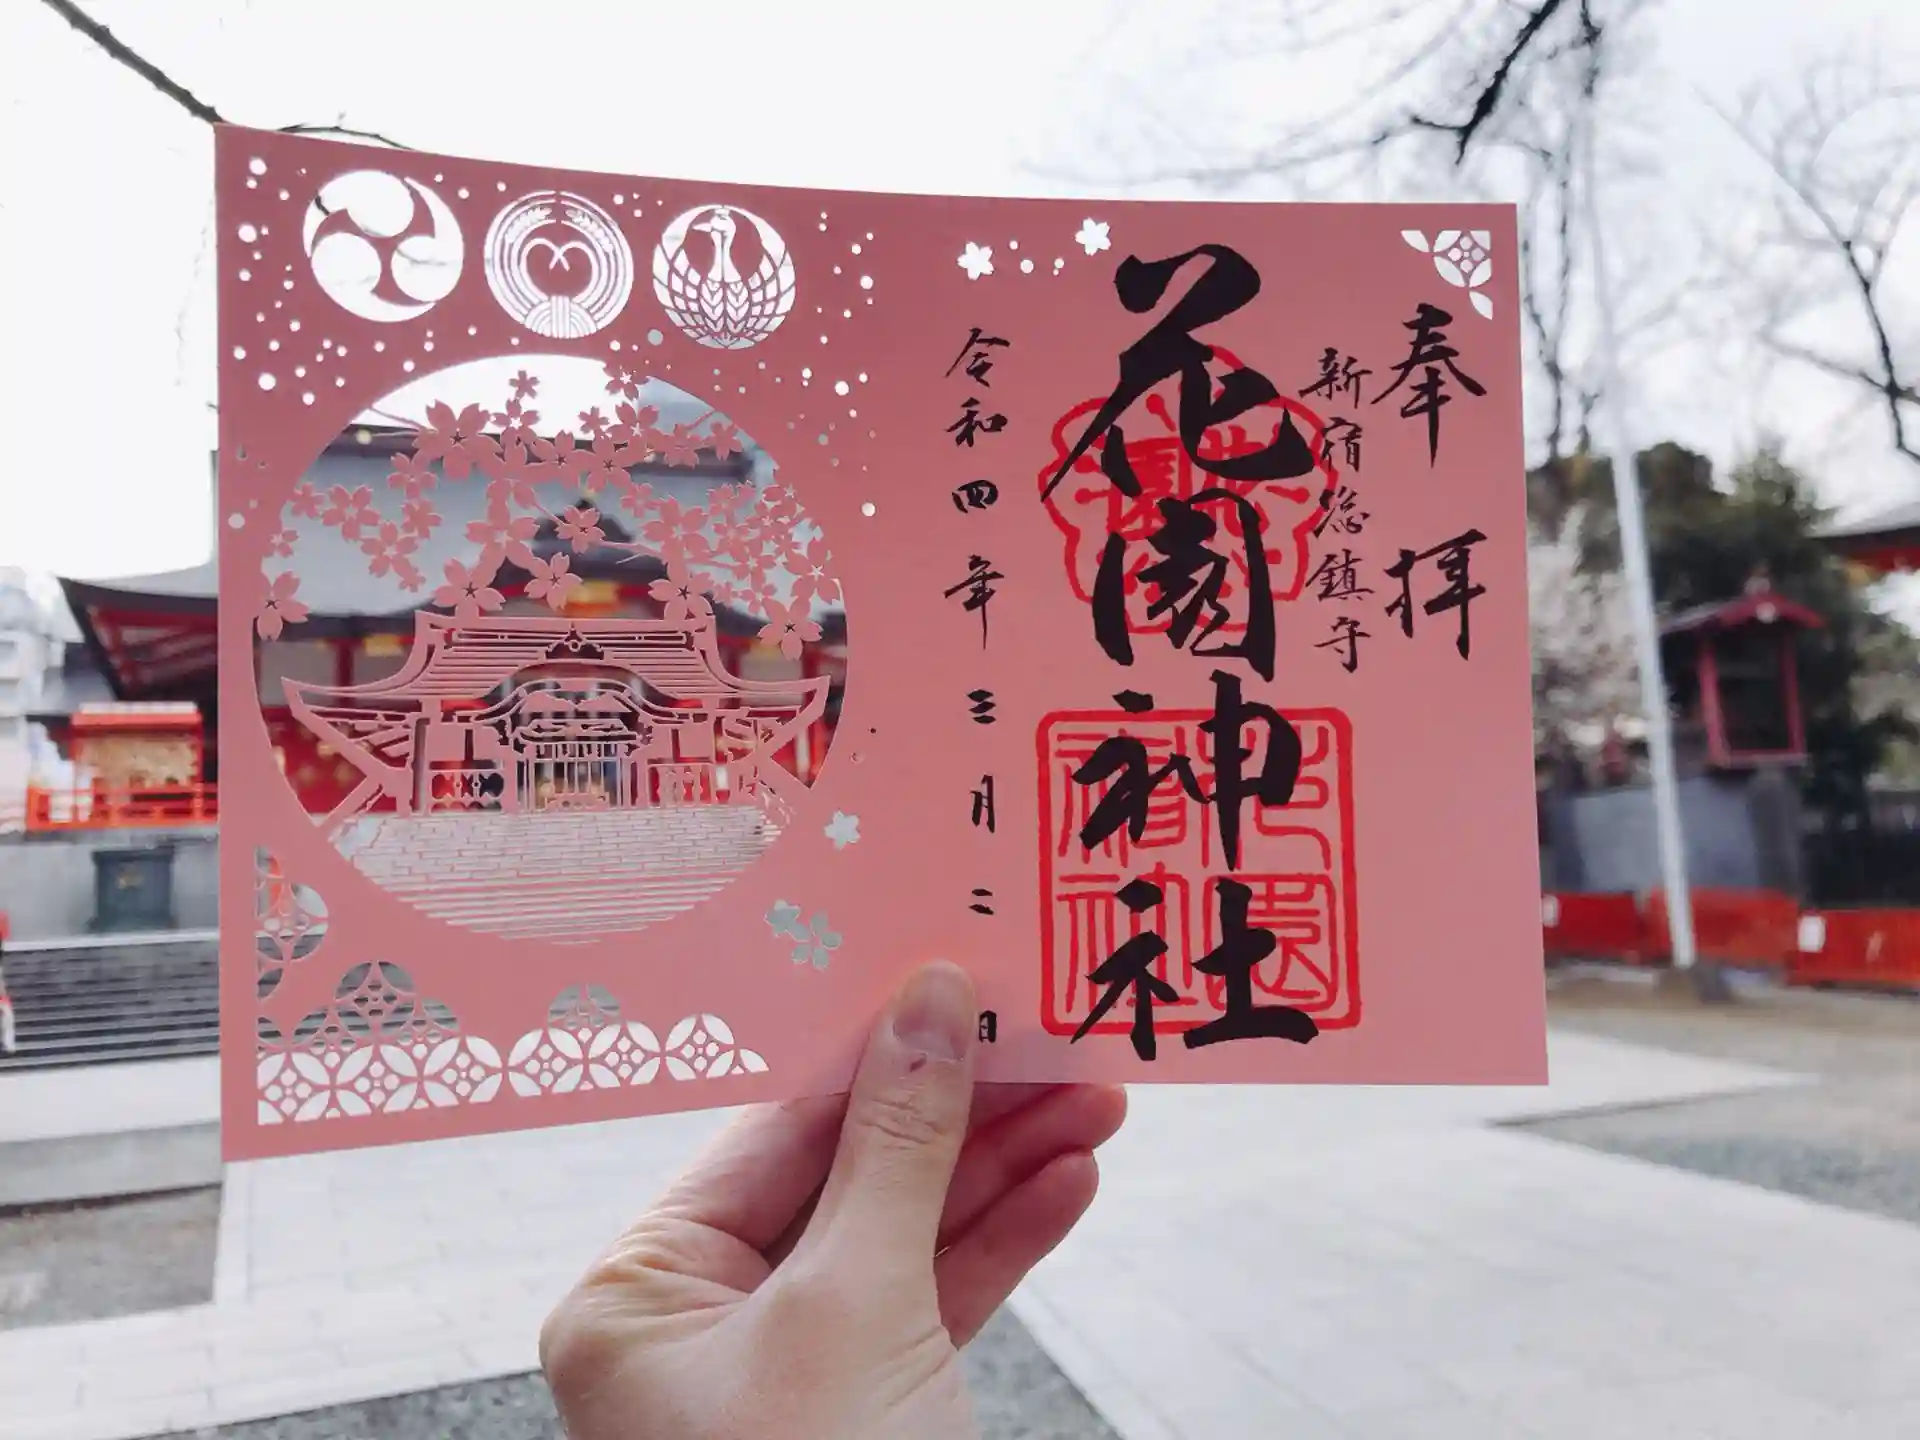 奉拝
新宿総鎮守
花園神社
令和四年三月二日